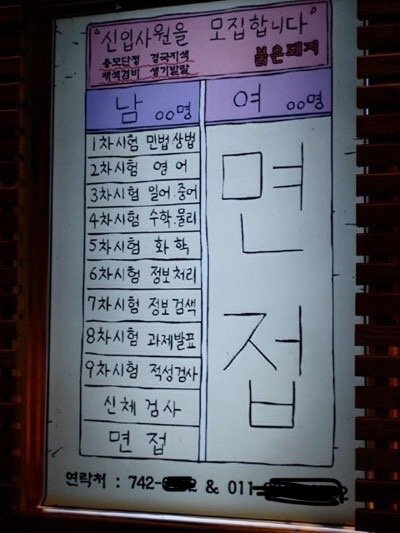 "신입사원을 모집합니다"
용모단정 경국지색
재색겸비 생기발랄
붉은돼지
남 00명
여 00명
1차시험 민법.상법
2차시험 영어
3차시험 일어.중어
4차시험 수학.물리
5차시험 화학
6차시험 정보처리
7차시험 정보검색
8차시험 과제발표
9차시험 적성검사
신체검사
면접
면접
연락처 : 742- 2 & 011-